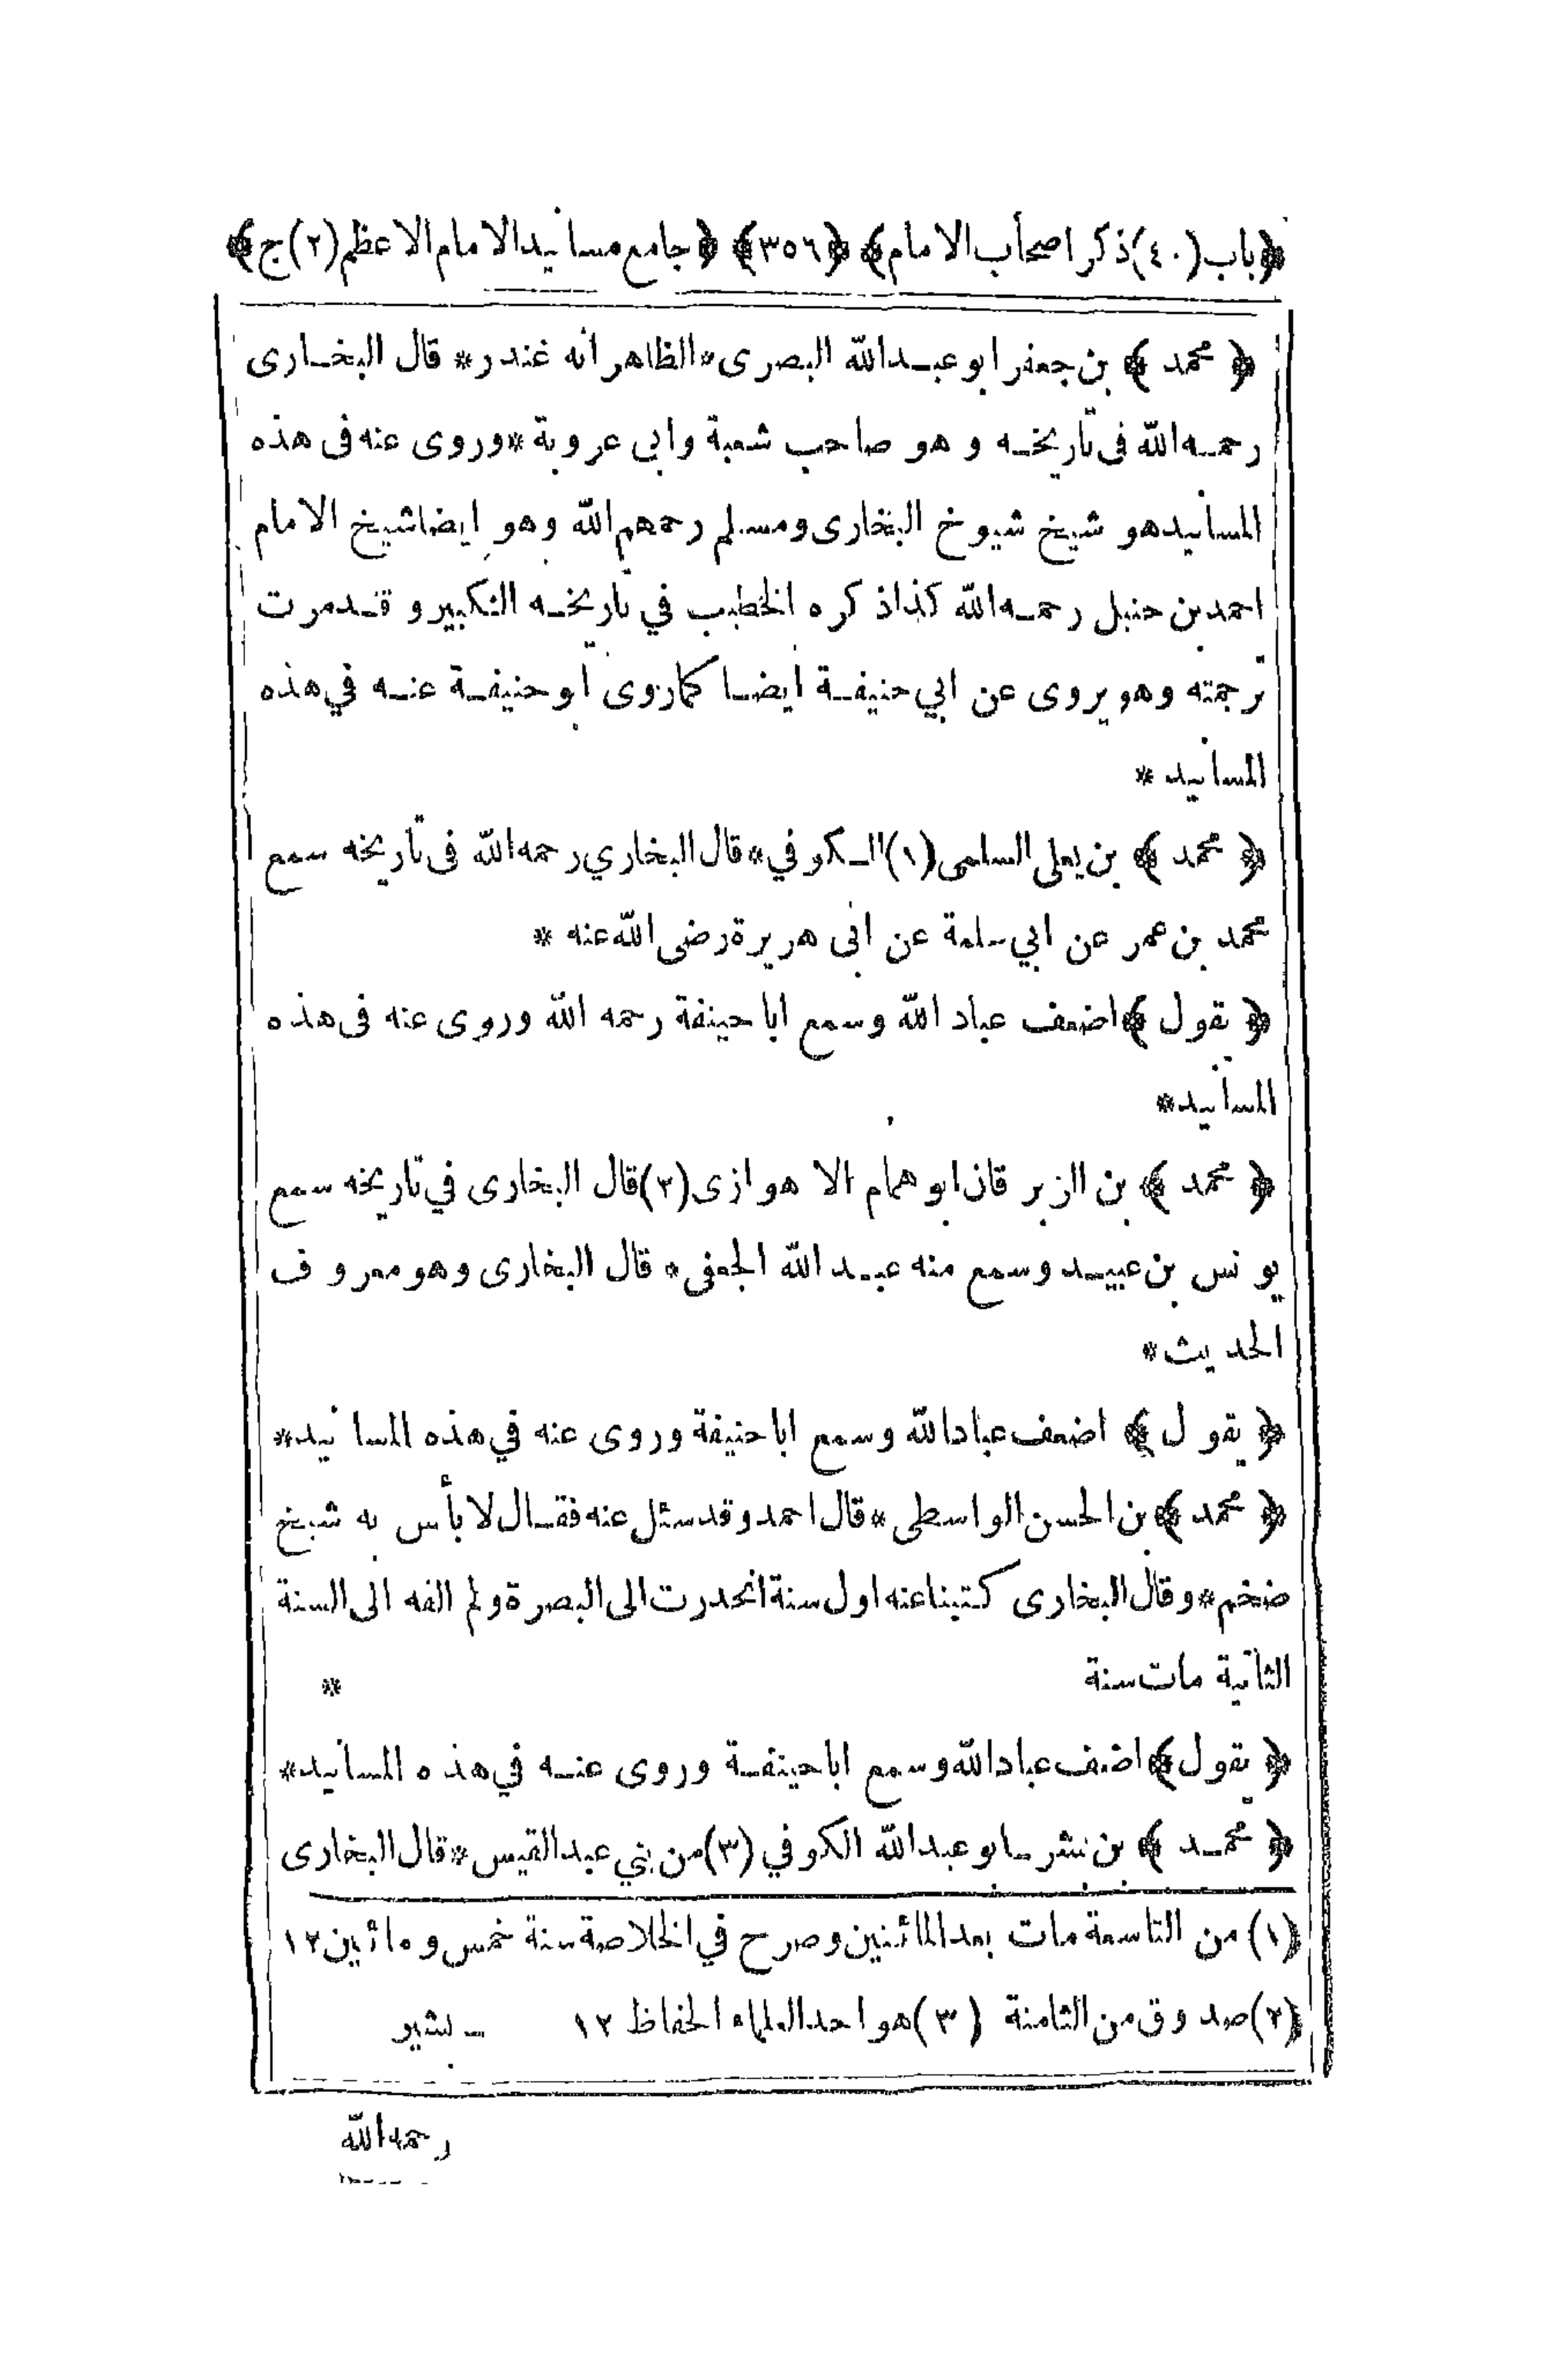 ﴿باب(٤٠)ذكر اصحاب الامام﴾ ﴿٣٥٦﴾ ﴿جامع مسانيد الامام الاعظم(٢)ج﴾
﴿ محمد ﴾ بن جعفر ابو عبد الله البصرى* الظاهر انه غندر* قال البخارى
رحمه الله فى تاريخه و هو صاحب شعبة وابى عروبة *وروى عنه فى هذه
المسانيد هو شيخ شيوخ البخارى ومسلم رحمهم الله وهو ايضا شيخ الامام
احمد بن حنبل رحمه الله كذا ذكره الخطيب في تاريخه الكبير و قد مرت
ترجمته وهو يروى عن ابي حنيفة ايضا كما روى ابو حنيفة عنه في هذه
المسانيد *
﴿ محمد ﴾ بن يعلى السلمى(١) الكوفي* قال البخاري رحمه الله فى تاريخه سمع
محمد بن عمر عن ابي سلمة عن ابى هريرة رضى الله عنه *
﴿ يقول ﴾ اضعف عباد الله وسمع ابا حنيفة رحمه الله وروى عنه فى هذه
المسانيد*
﴿ محمد ﴾ بن الزبرقان ابو همام الاهوازى(٢) قال البخارى في تاريخه سمع
يونس بن عبيد وسمع منه عبد الله الجعفى* قال البخارى وهو معروف
الحديث*
﴿ يقول ﴾ اضعف عباد الله وسمع ابا حنيفة وروى عنه في هذه المسانيد*
﴿ محمد ﴾ بن الحسن الواسطى* قال احمد وقد سئل عنه فقال لا بأس به شيخ
ضخم* وقال البخارى كتبنا عنه اول سنة انحدرت الى البصرة ولم الفه الى السنة
الثانية مات سنة *
﴿ يقول ﴾ اضعف عباد الله وسمع ابا حنيفة وروى عنه في هذه المسانيد*
﴿ محمد ﴾ بن نشر ـ ابو عبد الله الكوفي (٣) من بني عبد القيس* قال البخارى
(١) من التاسعة مات بعد المائتين وصرح في الخلاصة سنة خمس و مائتين ١٢
(٢) صدوق من الثامنة (٣) هو احد العلماء الحفاظ ١٢ ـ بشير
رحمه الله